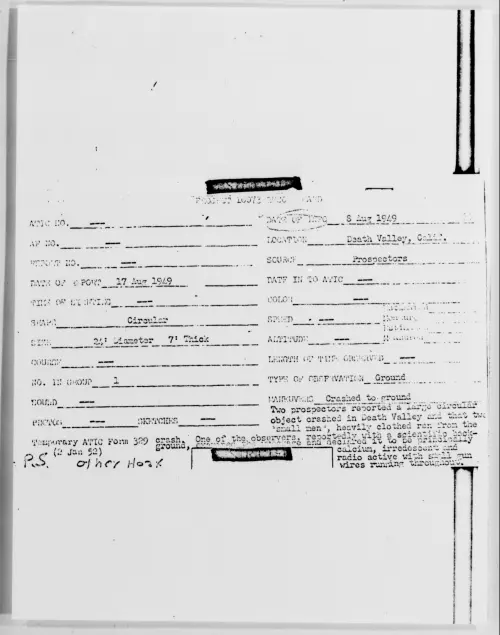 ATIC NO. --- DATE OF INFO 8 Aug 1949
AF NO. --- LOCATION Death Valley, Calif.
REPORT NO. --- SOURCE Prospectors
DATE OF REPORT 17 Aug 1949 DATE IN TO ATIC ---
TIME OF SIGHTING --- COLOR ---
SHAPE Circular SPEED ---
SIZE 24' Diameter 7' Thick ALTITUDE ---
COURSE --- LENGTH OF TIME OBSERVED ---
NO. IN GROUP 1 TYPE OF OBSERVATION Ground
SOUND --- MANEUVERS Crashed to ground
PHOTOS --- SKETCHES ---
Two prospectors reported a large circular
object crashed in Death Valley and that two
'small men', heavily clothed ran from the
crash. One of the observers, reportedly with a scientific back-
ground, and declared it to be
calcium, irredescent and
radio active with small gun
wires running throughout.
Temporary ATIC Form 329
(2 Jan 52)
P.S. other Hoax